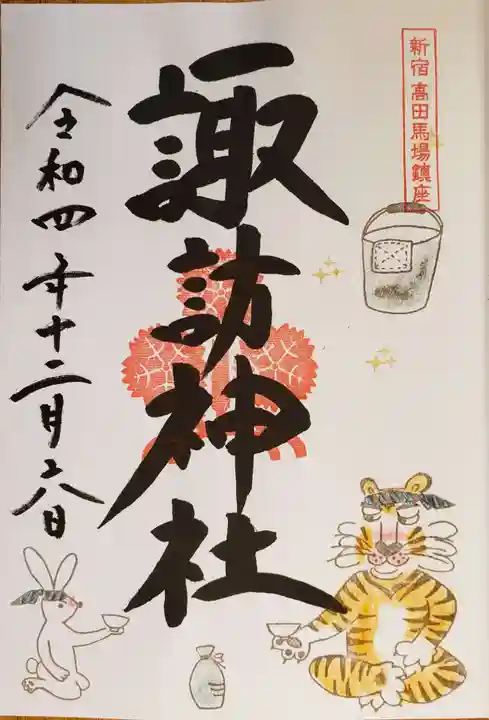 新宿高田馬場鎮座
諏訪神社
令和四年十二月六日